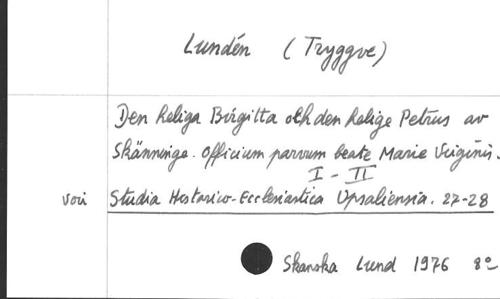 Lundén (Tryggve)
Den heliga Birgitta och den helige Petrus av
Skänninge. Officium parvum beate Marie Virginis.
I - II
voir Studia Historico-Ecclesiastica Upsaliensia. 27-28
Skanska Lund 1976 8º